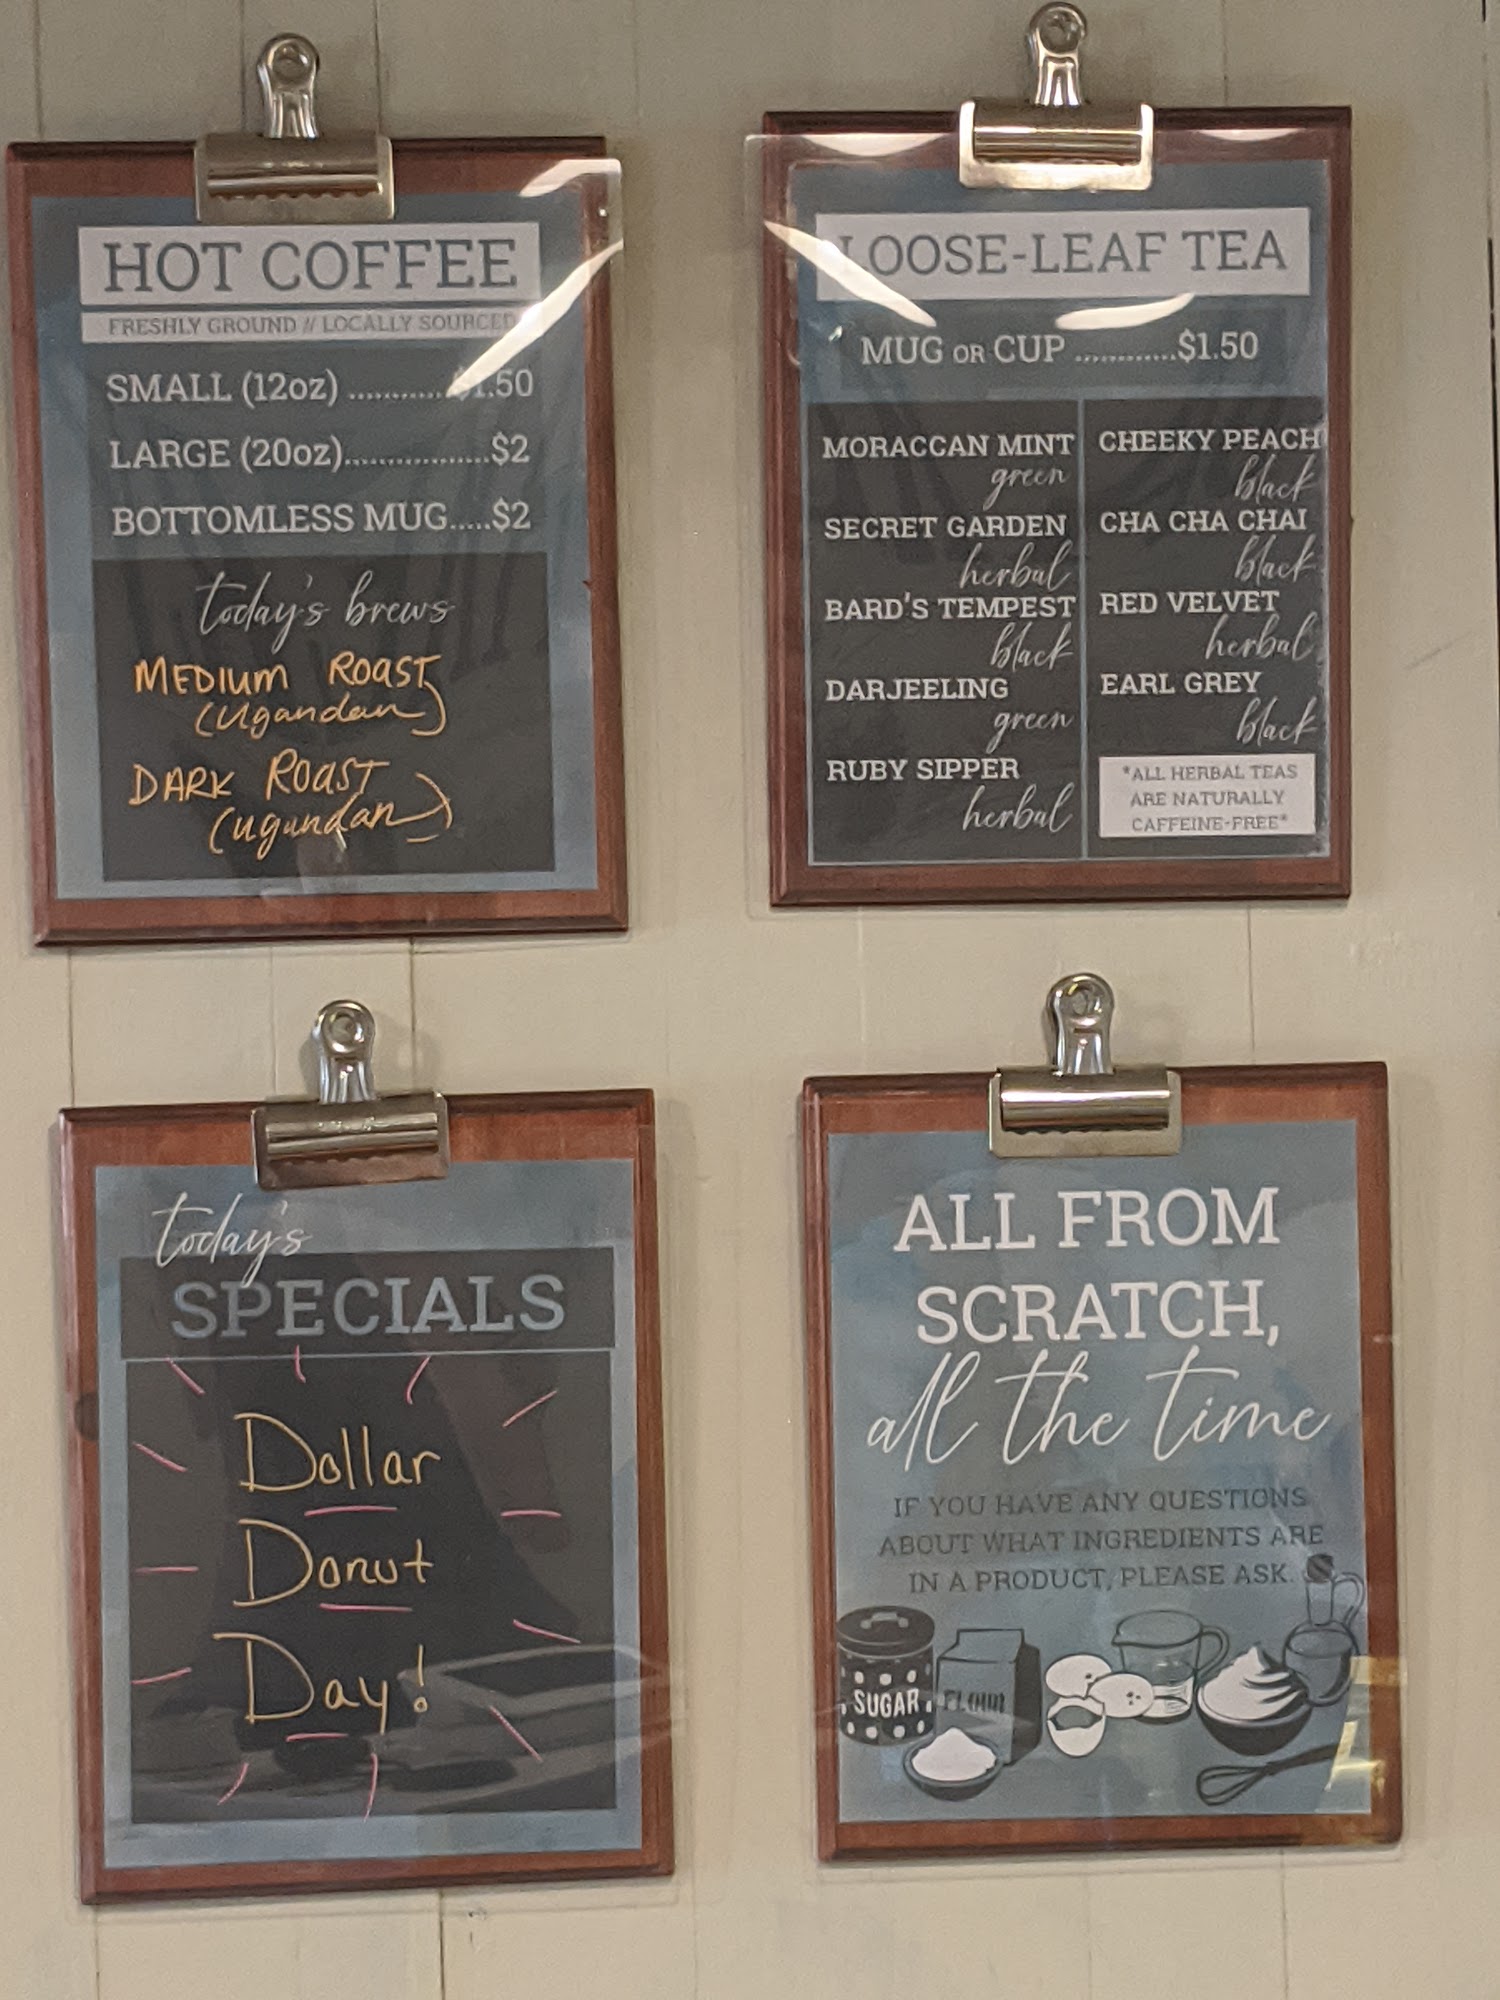 HOT COFFEE
FRESHLY GROUND // LOCALLY SOURCED
SMALL (12oz) ..........$1.50
LARGE (20oz)..................$2
BOTTOMLESS MUG.....$2
today's brews
MEDIUM ROAST
(Ugandan)
DARK ROAST
(Ugandan)
LOOSE-LEAF TEA
MUG OR CUP ............$1.50
MORACCAN MINT
green
SECRET GARDEN
herbal
BARD'S TEMPEST
black
DARJEELING
green
RUBY SIPPER
herbal
CHEEKY PEACH
black
CHA CHA CHAI
black
RED VELVET
herbal
EARL GREY
black
*ALL HERBAL TEAS
ARE NATURALLY
CAFFEINE-FREE*
today's
SPECIALS
Dollar
Donut
Day!
ALL FROM
SCRATCH,
all the time
IF YOU HAVE ANY QUESTIONS
ABOUT WHAT INGREDIENTS ARE
IN A PRODUCT, PLEASE ASK.
SUGAR
FLOUR